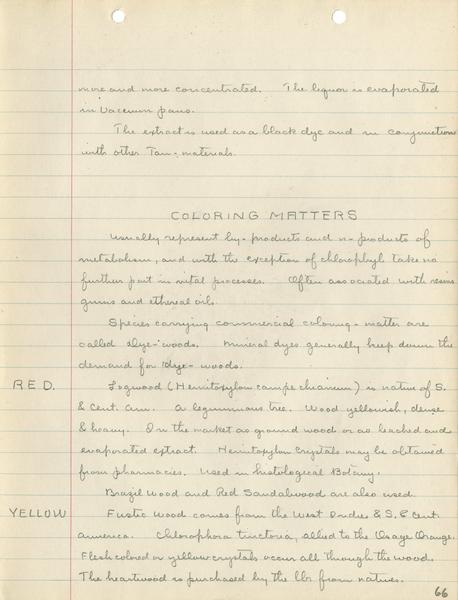 more and more concentrated. The liquor is evaporated
in Vacuum pans.
The extract is used as a black dye and in conjunction
with other Tan-materials.
COLORING MATTERS
Usually represent by-products and products of
metabolism, and with the exception of chlorophyl take no
further part in vital processes. Often associated with resins
gums and ethereal oils.
Species carrying commercial coloring-matter are
called Dye-woods. Mineral dyes generally keep down the
demand for Dye-woods.
RED. Logwood (Hemitoxylon campechianum) is native of S.
& Cent. Am. A leguminous tree. Wood yellowish, dense
& heavy. On the market as ground wood or as leached and
evaporated extract. Hemitoxylon Crystals may be obtained
from pharmacies. Used in histological Botany.
Brazil Wood and Red Sandalwood are also used.
YELLOW Fustic Wood comes from the West Indies & S. & Cent.
America. Chlorophora tinctoria, allied to the Osage Orange.
Flesh colored or yellow crystals occur all through the wood.
The heartwood is purchased by the lb. from natives.
66